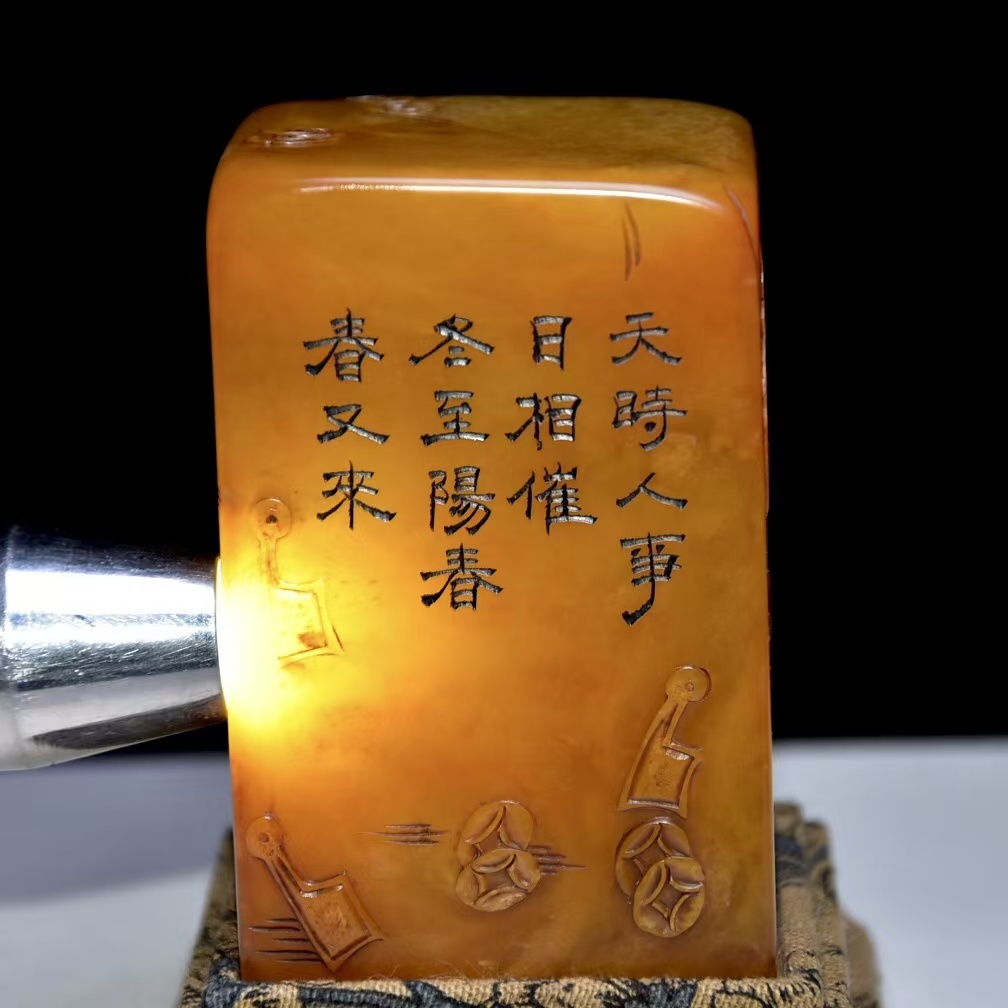 天時人事
日相催
冬至陽春
春又來